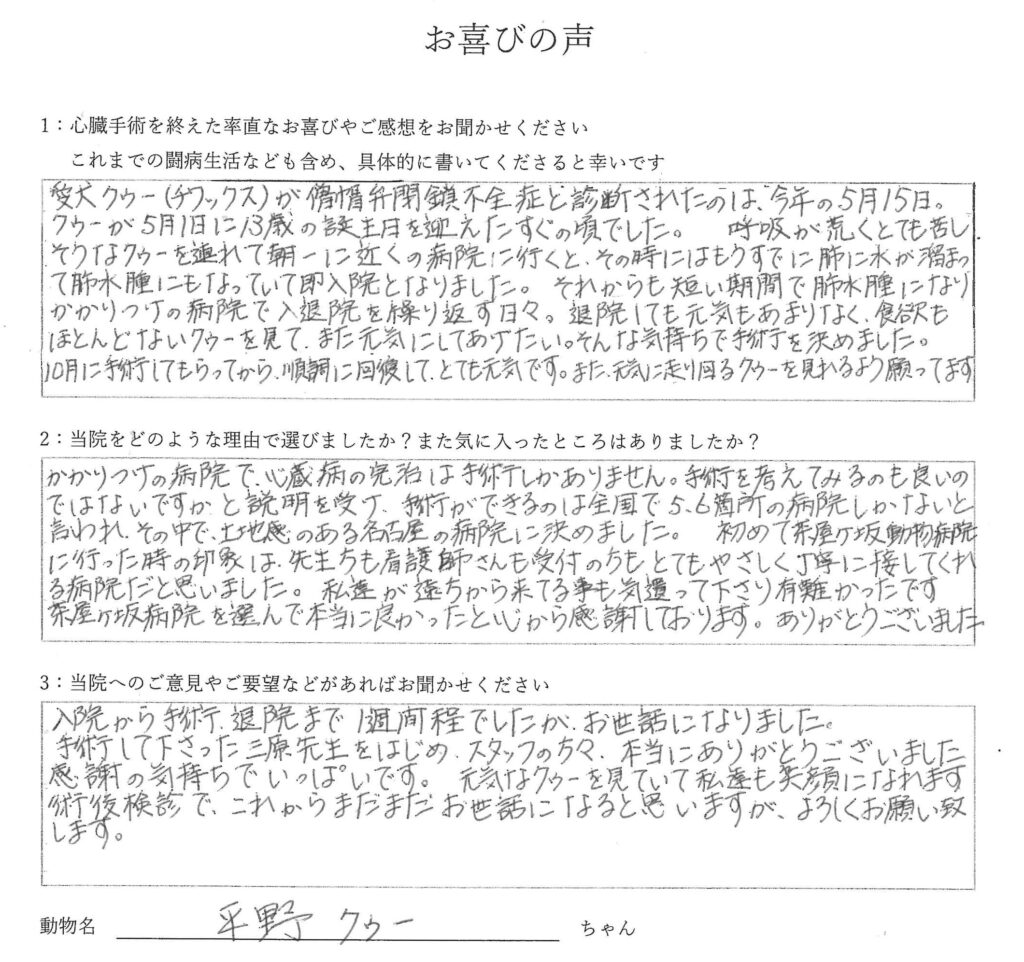 お喜びの声
1：心臓手術を終えた率直なお喜びやご感想をお聞かせください
これまでの闘病生活なども含め、具体的に書いてくださると幸いです
愛犬クゥー(チワックス)が僧帽弁閉鎖不全症と診断されたのは、今年の5月15日。
クゥーが5月1日に13歳の誕生日を迎えたすぐの頃でした。 呼吸が荒くとても苦し
そうなクゥーを連れて朝一に近くの病院に行くと、その時にはもうすでに肺に水が溜まっ
て肺水腫にもなっていて即入院となりました。 それからも短い期間で肺水腫になり
かかりつけの病院で入退院を繰り返す日々。退院しても元気もあまりなく、食欲も
ほとんどないクゥーを見て、また元気にしてあげたい。そんな気持ちで手術を決めました。
10月に手術してもらってから、順調に回復して、とても元気です。また、元気に走り回るクゥーを見れるよう願ってます
2：当院をどのような理由で選びましたか？また気に入ったところはありましたか？
かかりつけの病院で、心蔵病の完治は手術しかありません。手術を考えてみるのも良いの
ではないですか と説明を受け、手術ができるのは全国で5、6箇所の病院しかないと
言われ、その中で、土地感のある名古屋の病院に決めました。 初めて茶屋ヶ坂動物病院
に行った時の印象は、先生方も看護師さんも受付の方も とてもやさしく丁寧に接してくれ
る病院だと思いました。 私達が遠方から来てる事も気遣って下さり有難かったです
茶屋ヶ坂病院を選んで本当に良かったと心から感謝しております。ありがとうございました
3：当院へのご意見やご要望などがあればお聞かせください
入院から手術、退院まで1週間程でしたが、お世話になりました。
手術して下さった三原先生をはじめ、スタッフの方々、本当にありがとうございました
感謝の気持ちでいっぱいです。 元気なクゥーを見ていて私達も笑顔になれます
術後検診で、これからまだまだお世話になると思いますが、よろしくお願い致
します。
動物名 平野 クゥー ちゃん